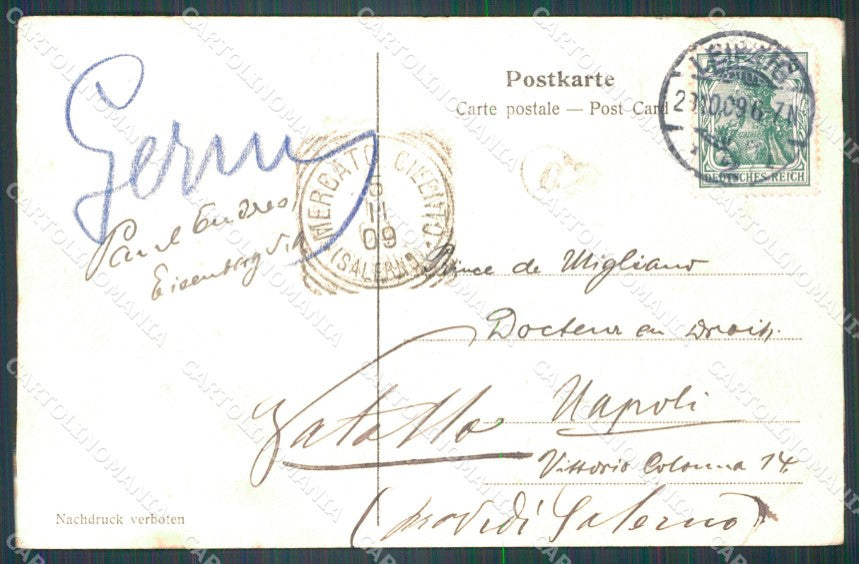 Postkarte
Carte postale — Post Card
LEIPZIG
DEUTSCHES REICH
MERCATO CILENTO
5
11
09
(SALERNO)
Paul Endres
Eisenberg S.A.
Prince de Migliano
Docteur en Droit.
Napoli
Vittorio Colonna 14.
(prov di Salerno)
Nachdruck verboten
CARTOLINOMANIA